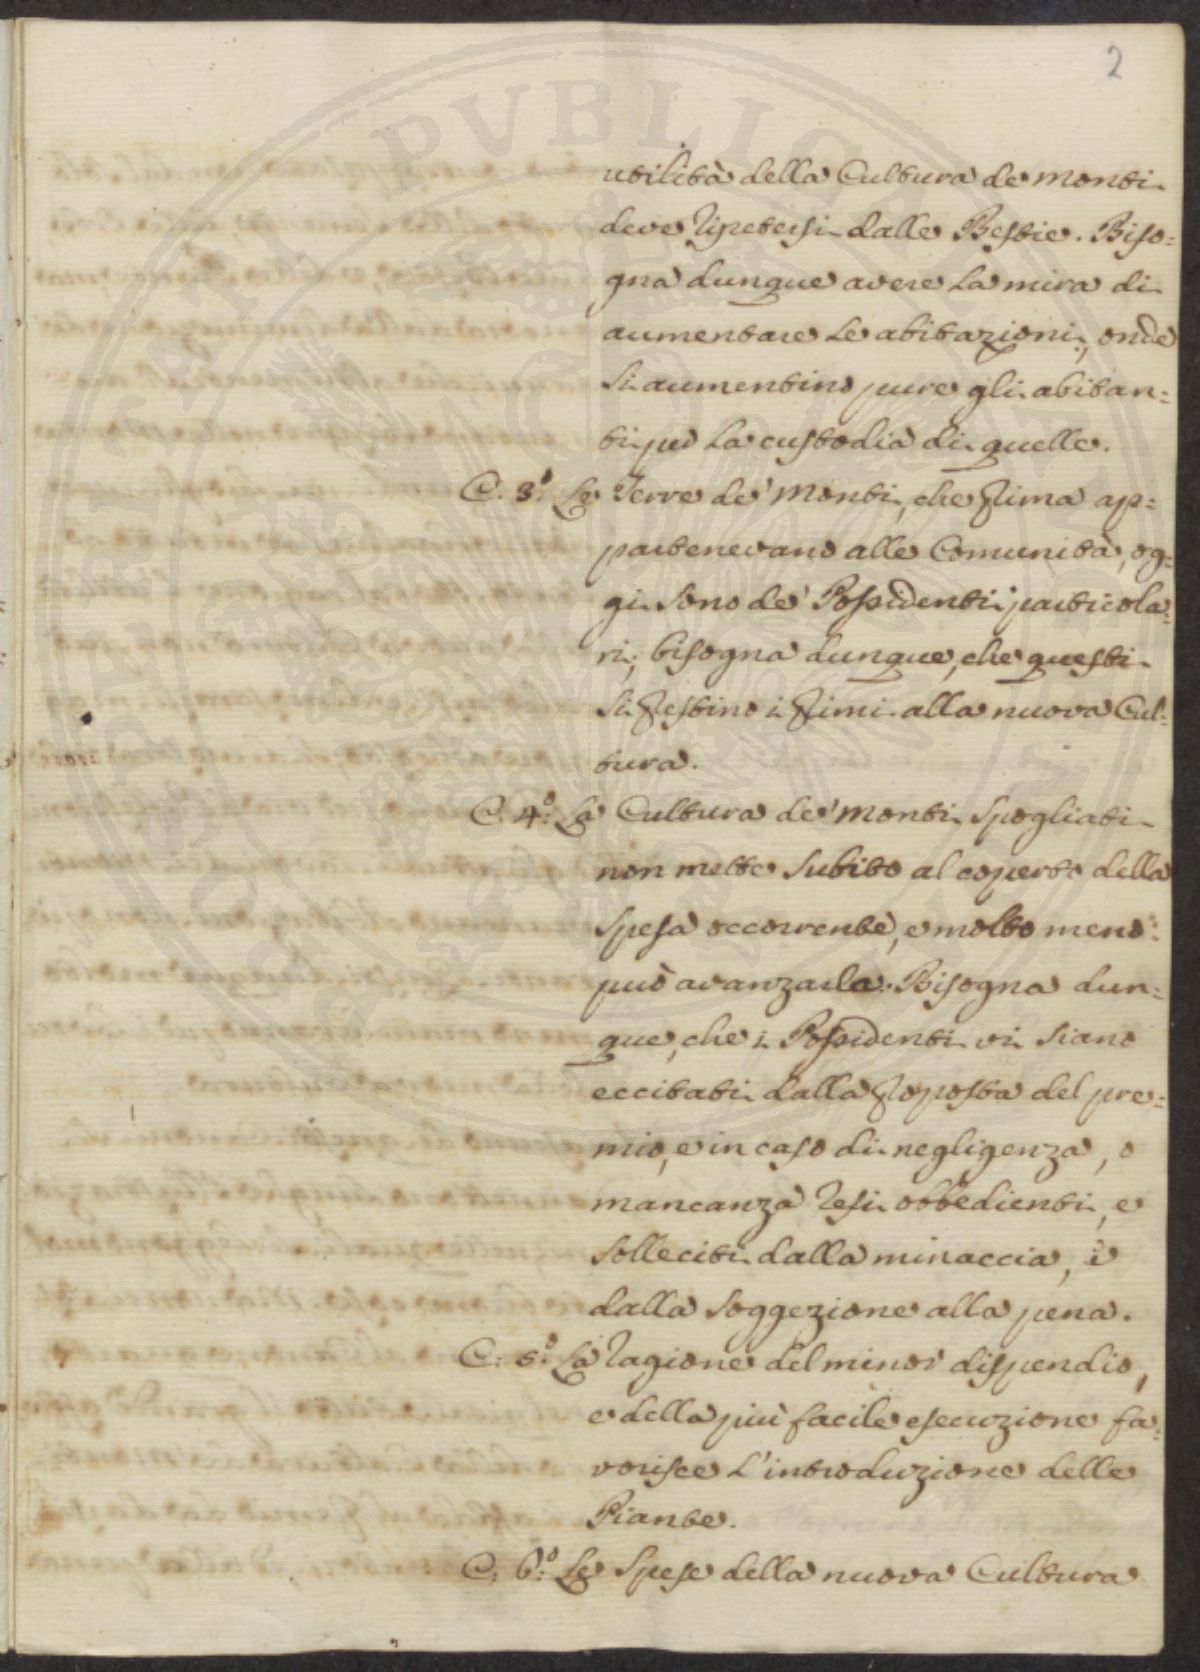 2
utilità della Cultura de monti
deve ripetersi dalle Bestie. Biso=
gna dunque avere la mira di
aumentare le abitazioni, onde
si aumentino pure gli abitan=
ti per la custodia di quelle.
C. 3.º Le Terre de' Monti, che prima ap=
partenevano alle Comunità, og=
gi sono de' Possidenti particola=
ri; bisogna dunque, che questi
si prestino i primi alla nuova Cul=
tura.
C. 4.º La Cultura de' Monti spogliati
non mette subito al coperto della
spesa occorrente, e molto meno
può avanzarla. Bisogna dun=
que, che i Possidenti vi siano
eccitati dalla proposta del pre=
mio, e in caso di negligenza, o
mancanza resi obbedienti, e
solleciti dalla minaccia, e
dalla soggezione alla pena.
C. 5.º La ragione del minor dispendio,
e della più facile esecuzione fa=
vorisce l'introduzione delle
Piante.
C. 6.º Le spese della nuova Cultura